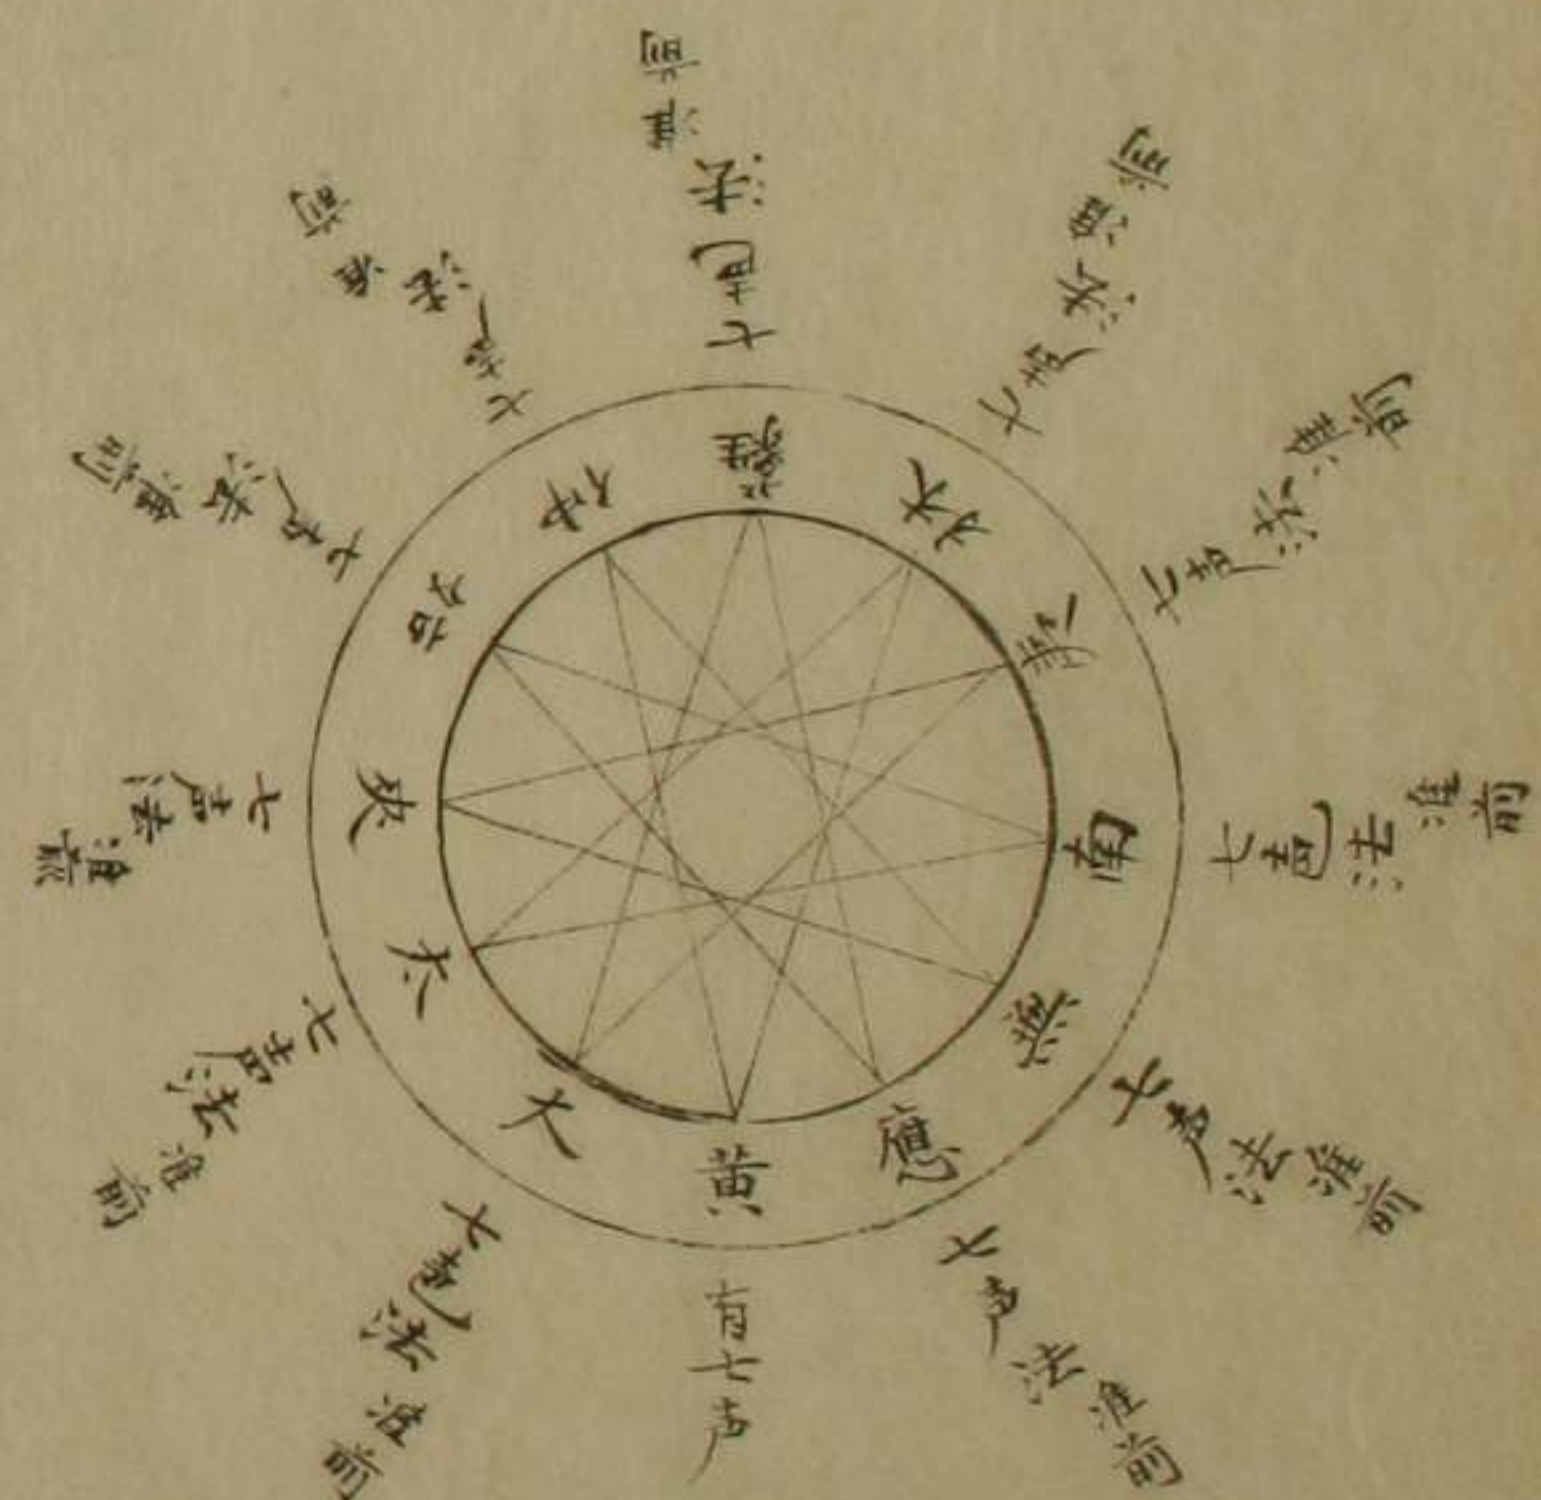 黄
大
太
夹
姑
仲
蕤
林
夷
南
無
應
有七声
七声法准前
七声法准前
七声法准前
七声法准前
七声法准前
七声法准前
七声法准前
七声法准前
七声法准前
七声法准前
七声法准前